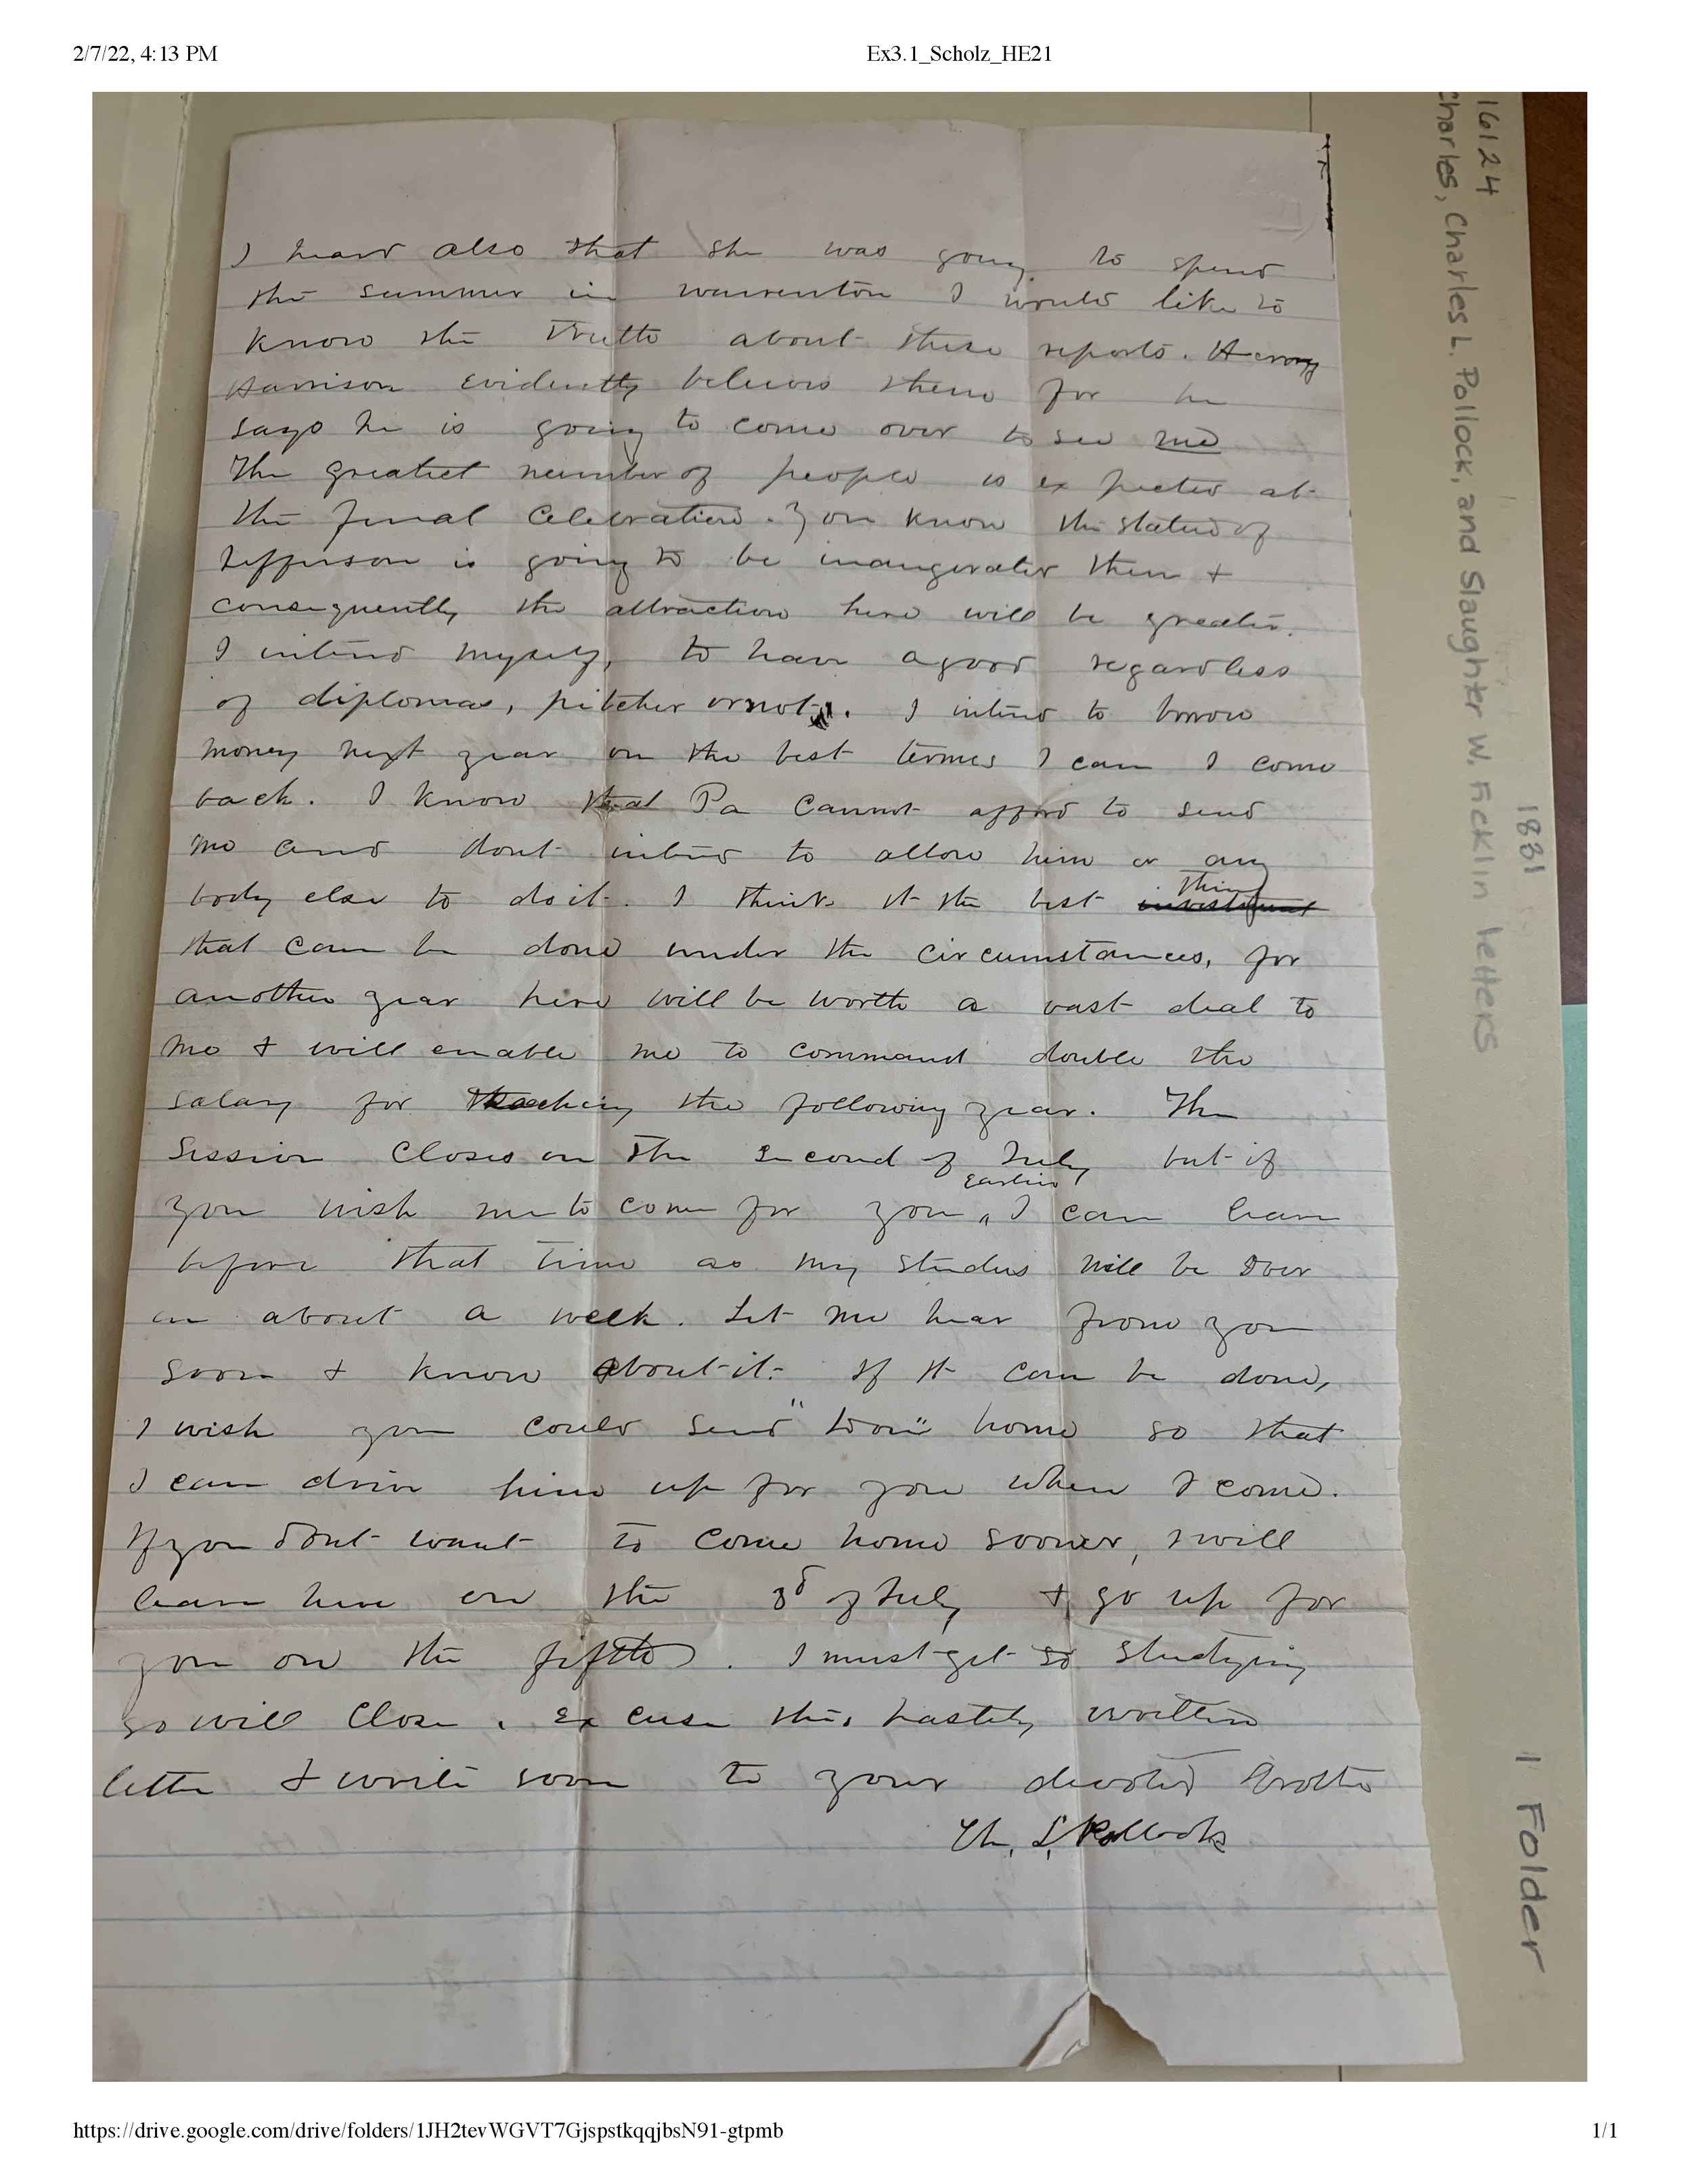 2/7/22, 4:13 PM
Ex3.1_Scholz_HE21
16124
Charles, Charles L. Pollock, and Slaughter W. Ficklin letters
1831
1 Folder
I heard also that she was going to spend
the summer in warrenton I would like to
know the Truth about these reports.
Harrison evidently believes them for he
says he is going to come over to see me
The greatest number of people is expected at
the final Celebration. You know the statue of
Jefferson is going to be inaugerated then &
consequently the attraction here will be greater.
I intend myself, to have a good regardless
of diplomas, pitcher or not. I intend to borrow
money next year on the best terms I can I come
back. I know that Pa Cannot afford to send
me and dont intend to allow him or any
body else to do it. I think it the best investment thing
that can be done under the circumstances, for
another year here will be worth a vast deal to
me & will enable me to command double the
salary for teaching the following year. The
Session Closes on the second of July but if
you wish me to come for you earlier, I can leave
before that time as my studies will be over
in about a week. Let me hear from you
soon & know about it. If it can be done,
I wish you could send " " home so that
I can drive him up for you when I come.
If you dont want to come home sooner, I will
leave here on the 3d of July & go up for
you on the fifth. I must get to studying
so will Close. Excuse this hastily written
letter & write soon to your devoted brother
Ch. L. Pollock
https://drive.google.com/drive/folders/1JH2tevWGVT7GjspstkqqjbsN91-gtpmb
1/1